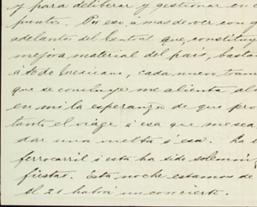 y para deliberar y gestionar en
puntos. Por eso a mas de ver con g
adelanto del Central que, constituy
mejora material del pais, bastan
a de Mexicano, cada nuevo tram
que se concluye me alienta al
en mi la esperanza de que pro
tanto el viage á esa que me sea
dar una vuelta á esa. La
ferrocarril á esta ha sido solemni
fiestas. Esta noche estamos de
el 21 habrá un concierto.